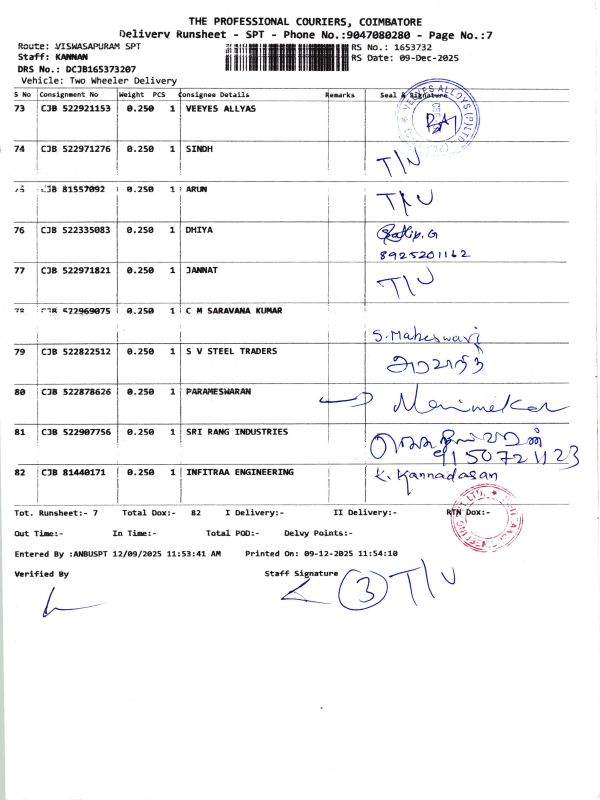 THE PROFESSIONAL COURIERS, COIMBATORE
Delivery Runsheet - SPT - Phone No.:9047080280 - Page No.:7
Route: VISWASAPURAM SPT RS No.: 1653732
Staff: KANNAN RS Date: 09-Dec-2025
DRS No.: DCJB165373207
Vehicle: Two Wheeler Delivery
S No Consignment No Weight PCS Consignee Details Remarks Seal & Signature
73 CJB 522921153 0.250 1 VEEYES ALLYAS
VEEYES ALLOYS (P) LTD.
74 CJB 522971276 0.250 1 SINDH T/U
75 CJB 81557092 0.250 1 ARUN T/U
76 CJB 522335083 0.250 1 DHIYA
8925201162
77 CJB 522971821 0.250 1 JANNAT T/U
78 CJB 522969075 0.250 1 C M SARAVANA KUMAR
S. Maheswari
79 CJB 522822512 0.250 1 S V STEEL TRADERS
80 CJB 522878626 0.250 1 PARAMESWARAN
81 CJB 522907756 0.250 1 SRI RANG INDUSTRIES
9150721123
82 CJB 81440171 0.250 1 INFITRAA ENGINEERING K. Kannadasan
Tot. Runsheet:- 7 Total Dox:- 82 I Delivery:- II Delivery:- RTN Dox:-
Out Time:- In Time:- Total POD:- Delvy Points:-
Entered By :ANBUSPT 12/09/2025 11:53:41 AM Printed On: 09-12-2025 11:54:10
Verified By Staff Signature 3 T/U